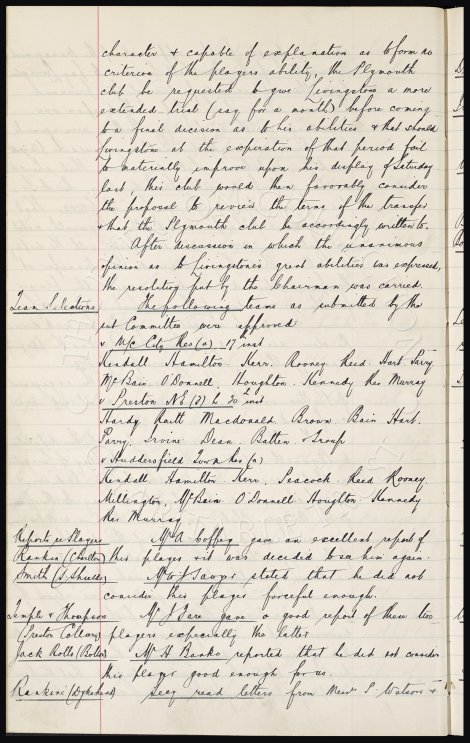 character & capable of explanation as to form no
criterion of the players ability, the Plymouth
club be requested to give Livingstone a more
extended trial (say for a month) before coming
to a final decision as to his abilities & that should
Livingstone at the expiration of that period fail
to materially improve upon his display of Saturday
last, this club would then favorably consider
the proposal to revise the terms of the transfer
& that the Plymouth club be accordingly written to.
After discussion in which the unanimous
opinion as to Livingstone's great abilities was expressed,
the resolution put by the Chairman was carried.
Team Selections The following teams as submitted by the
sub Committee were approved
v M/c City Res (a) 17th inst
Kendall. Hamilton. Kerr. Rooney Reed. Hart Parry
McBain. O'Donnell. Houghton. Kennedy Res Murray
v Preston N.E. (R) L 20th inst
Hardy Raitt Macdonald. Brown. Bain Hart.
Parry. Irvine Dean. Batten. & Troup
v Huddersfield Town Res (a)
Kendall. Hamilton. Kerr. Peacock. Reed Rooney.
Millington. McBain O'Donnell Houghton. Kennedy
Res Murray
Reports re Players Mr A Coffey gave an excellent report of
Rankin (Charlton) this player & it was decided to see him again.
Smith (S. Shields) Mr W J Sawyer stated that he did not
consider this player forceful enough.
Temple & Thompson Mr J Fare gave a good report of these two
(Preston Colliery) players especially the latter
Jack Rolls (Bolton) Mr A Banks reported that he did not consider
this player good enough for us.
Rankin (Dykehead) Secy read letters from Messrs S. Watson &